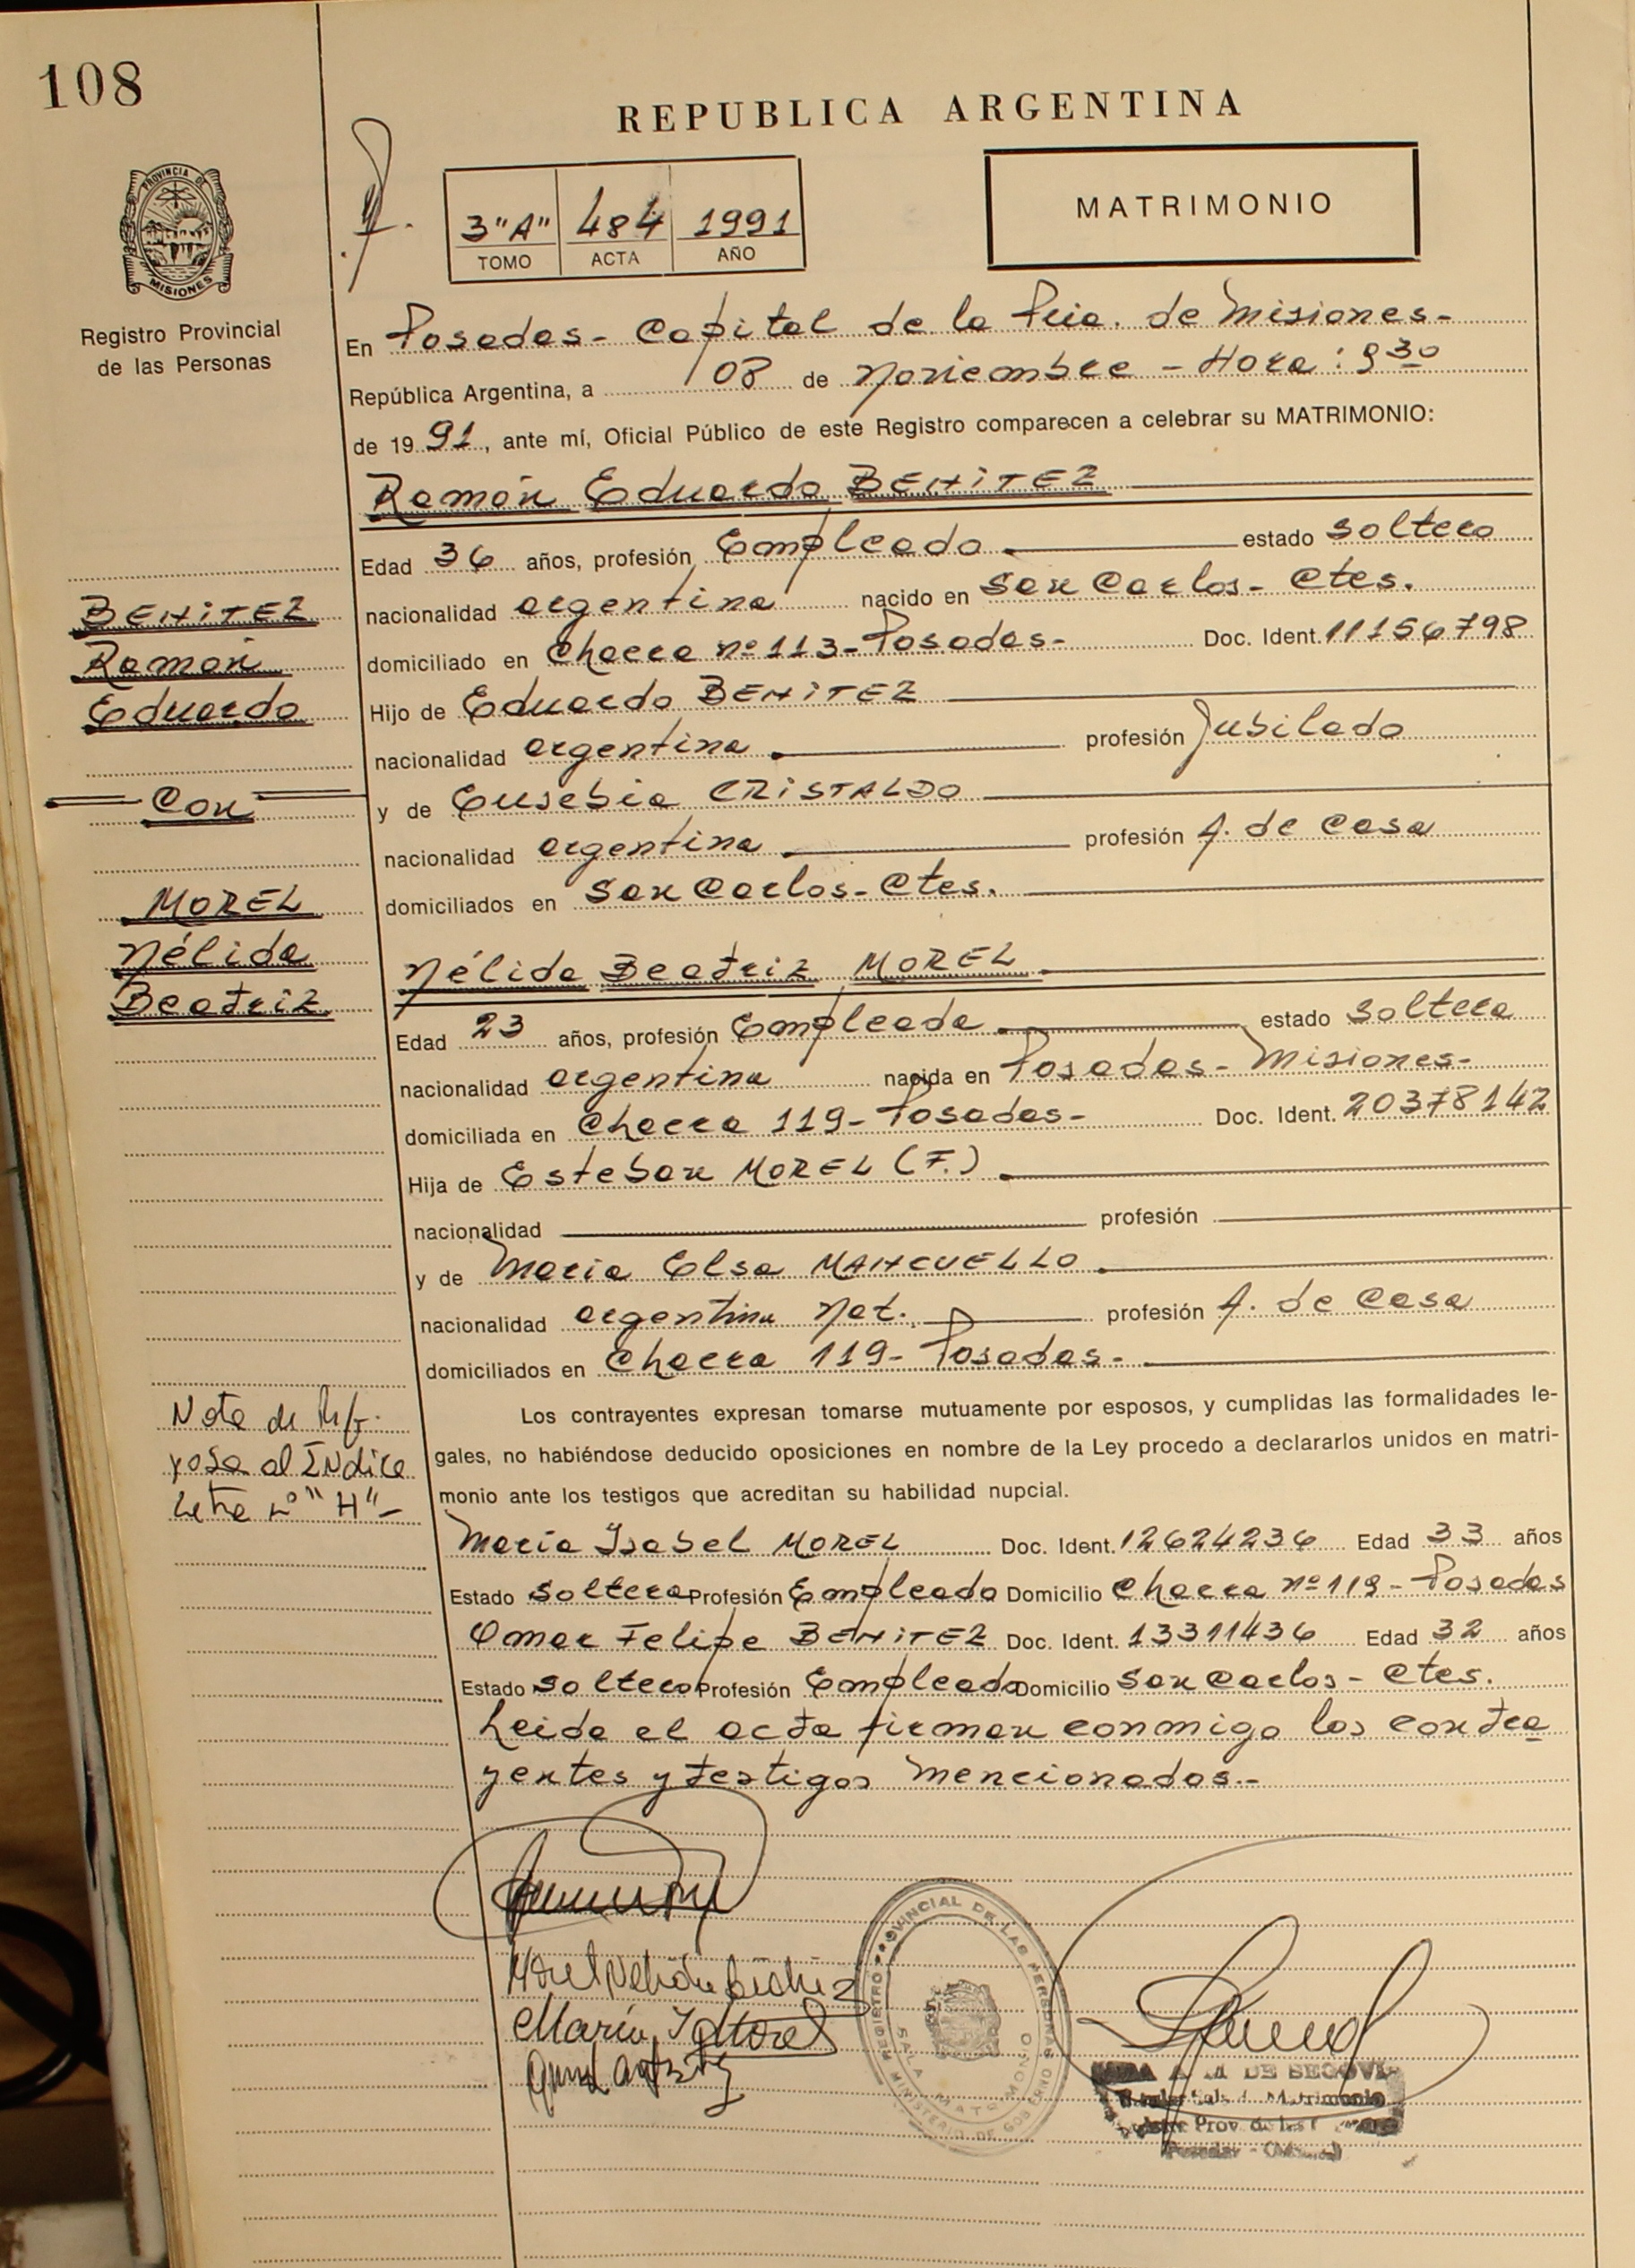 108
REPUBLICA ARGENTINA
PROVINCIA DE
MISIONES
Registro Provincial
de las Personas
3"A" 484 1991
TOMO ACTA AÑO
MATRIMONIO
En Posadas - Capital de la Pcia. de Misiones -
República Argentina, a 08 de Noviembre - Hora: 9 30
de 19 91, ante mí, Oficial Público de este Registro comparecen a celebrar su MATRIMONIO:
Ramón Eduardo BENITEZ
Edad 36 años, profesión Empleado estado soltero
nacionalidad argentina nacido en San Carlos - Ctes.
domiciliado en Chacra nº 113 - Posadas - Doc. Ident. 11156798
Hijo de Eduardo BENITEZ
nacionalidad argentina profesión Jubilado
y de Eusebia CRISTALDO
nacionalidad argentina profesión A. de Casa
domiciliados en San Carlos - Ctes.
BENITEZ
Ramón
Eduardo
Con
MOREL
Nélida
Beatriz
Nélida Beatriz MOREL
Edad 23 años, profesión Empleada estado soltera
nacionalidad argentina nacida en Posadas - Misiones -
domiciliada en Chacra 119 - Posadas - Doc. Ident. 20378142
Hija de Esteban MOREL (F.)
nacionalidad profesión
y de María Elsa MANCUELLO
nacionalidad argentina Nat. profesión A. de Casa
domiciliados en Chacra 119 - Posadas -
Nota de
al Indice
Letra "H" -
Los contrayentes expresan tomarse mutuamente por esposos, y cumplidas las formalidades le-
gales, no habiéndose deducido oposiciones en nombre de la Ley procedo a declararlos unidos en matri-
monio ante los testigos que acreditan su habilidad nupcial.
María Isabel MOREL Doc. Ident. 12624236 Edad 33 años
Estado soltera Profesión Empleada Domicilio Chacra nº 119 - Posadas
Omar Felipe BENITEZ Doc. Ident. 13311436 Edad 32 años
Estado soltero Profesión Empleado Domicilio San Carlos - Ctes.
Leida el acta firman conmigo los contra
yentes y testigos mencionados. -
Morel Nelida Beatriz
María I Morel
REGISTRO PROVINCIAL DE LAS PERSONAS
SALA MATRIMONIO
MINISTERIO DE GOBIERNO
DE SEGOVIA
Matrimonio
Prov. de las
Posadas